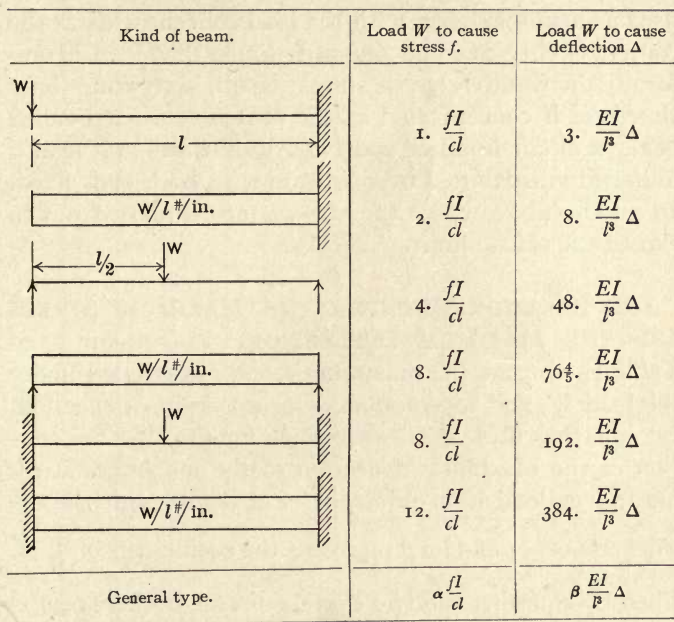 Kind of beam. Load W to cause stress f. Load W to cause deflection Δ
W
l
1. fI/cl 3. EI/l³ Δ
W/l #/in.
2. fI/cl 8. EI/l³ Δ
l/2 W
4. fI/cl 48. EI/l³ Δ
W/l #/in.
8. fI/cl 76⅘. EI/l³ Δ
W
8. fI/cl 192. EI/l³ Δ
W/l #/in.
12. fI/cl 384. EI/l³ Δ
General type. α fI/cl β EI/l³ Δ